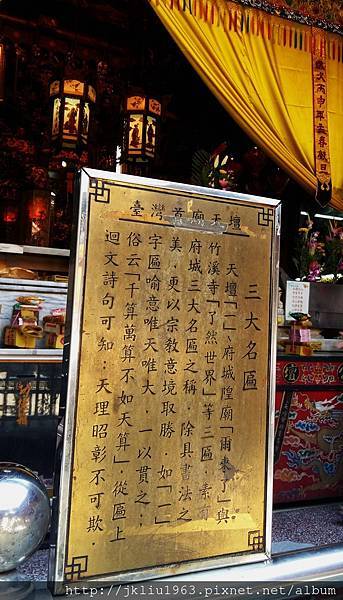 臺灣首廟天壇
三大名匾
天壇「一」、府城隍廟「爾來了」與
竹溪寺「了然世界」等三匾．素有
府城三大名匾之稱．除具書法之
美．更以宗教意境取勝．如「一」
字匾喻意唯天唯大．一以貫之；
俗云「千算萬算不如天算」從匾上
迴文詩句可知：天理昭彰不可欺．
http://jkliu1963.pixnet.net/album